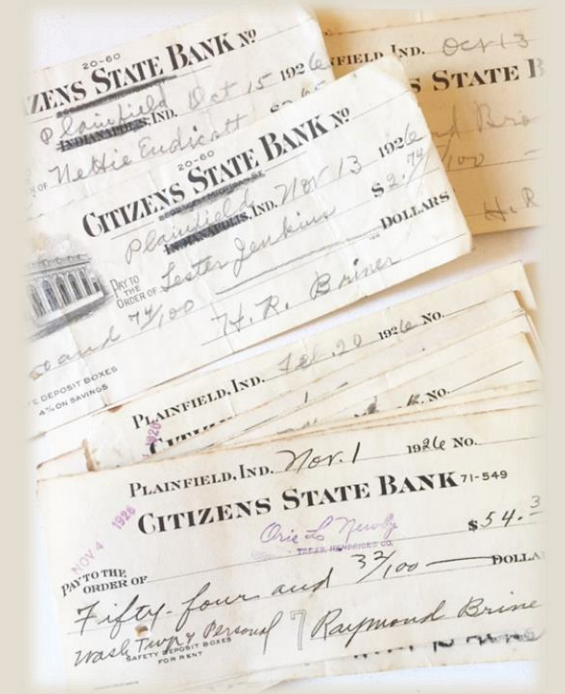 20-60
ZENS STATE BANK No
Plainfield Oct 15 1926
INDIANAPOLIS, IND.
OF Nettie Endicott
NFIELD, IND. Oct 13
S STATE B
/100
H. R
20-60
CITIZENS STATE BANK No
Plainfield Nov 13 1926
INDIANAPOLIS, IND.
$2.74
PAY TO THE ORDER OF Lester Jenkins
DOLLARS
and 74/100 H. R. Briner
E DEPOSIT BOXES
4% ON SAVINGS
PLAINFIELD, IND. 20 1926 No.
1926
No.
PLAINFIELD, IND. Nov. 1 1926 No.
CITIZENS STATE BANK 71-549
NOV 4 1926
Orie L Newby $54.3
TREAS. HENDRICKS CO.
PAY TO THE ORDER OF
Fifty-four and 32/100 DOLLA
Wash Twp & Personal Raymond Brine
SAFETY DEPOSIT BOXES
FOR RENT